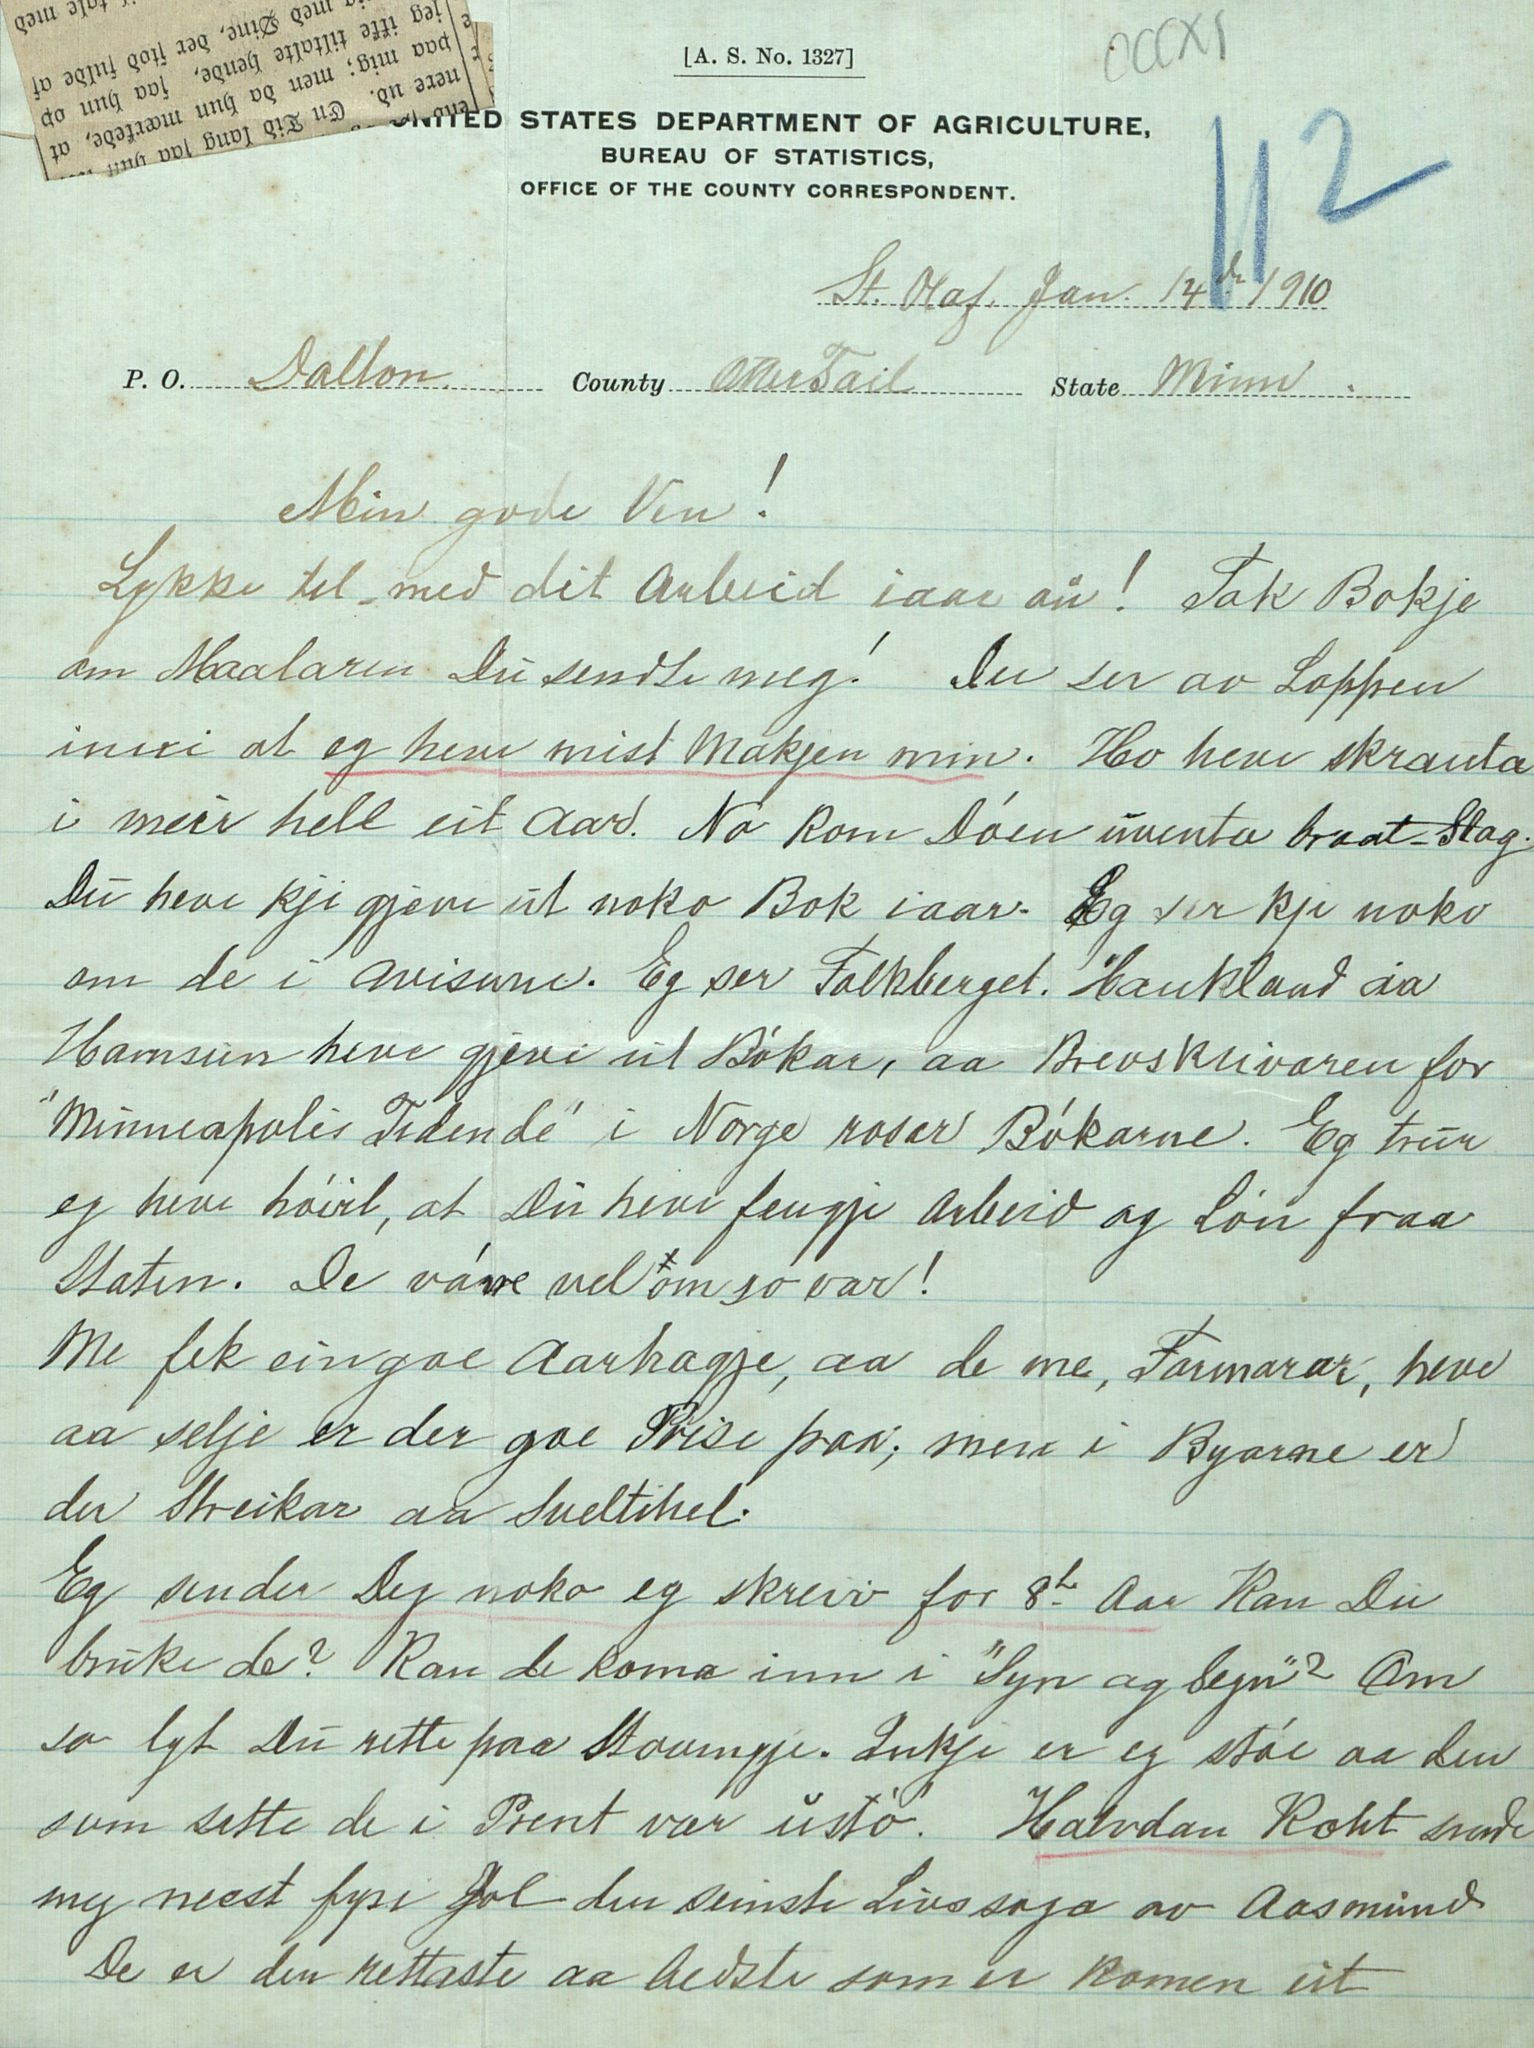 [A. S. No. 1327]
UNITED STATES DEPARTMENT OF AGRICULTURE,
BUREAU OF STATISTICS,
OFFICE OF THE COUNTY CORRESPONDENT.
112
St. Olaf, Jan. 14de 1910
P. O. Dalton County Otter Tail State Minn.
Min gode Ven!
Lykke til med dit Arbeid iaar au! Tak Bokje
om Maalaren Du sendte meg! Du ser av Lappen
inni at eg heve mist Makjen min. Ho heve skranta
i meir hell eit Aar. No kom Dóen uventa braat-Slag.
Du heve kji gjeve ut noko Bok iaar. Eg ser kje noko
om de i Avisune. Eg ser Falkberget. Haukland aa
Hamsun heve gjeve ut Bókar, aa Brevskrivaren for
"Minneapolis Tidende" i Norge rosar Bókarne. Eg trur
eg heve hóirt, at Du heve fengje Arbeid og Lón fraa
Staten. De váre vel om so var!
Me fek ein goe Aarhagje, aa de me, Farmarar, heve
aa selje er der goe Prise paa; men i Byarne er
der Streikar aa Sveltihel.
Eg sender Deg noko eg skreiv for 8t Aar Kan Du
bruke de? Kan de koma inn i "Syn og Segn"? Om
so lyt Du rette paa Stavingje. Inkje er eg stóe aa den
som sette de i Prent var ustó. Halvdan Koht sende
meg neest fyre Jol den seinste Livssoga av Aasmund
De er den rettaste aa bedste som er komen ut
en
nere ud. En Tid lang saa hun
paa mig; men da hun mærkede, at
jeg ikke tiltalte hende, saa hun op
mig med Øine, der stod fulde af
tale med